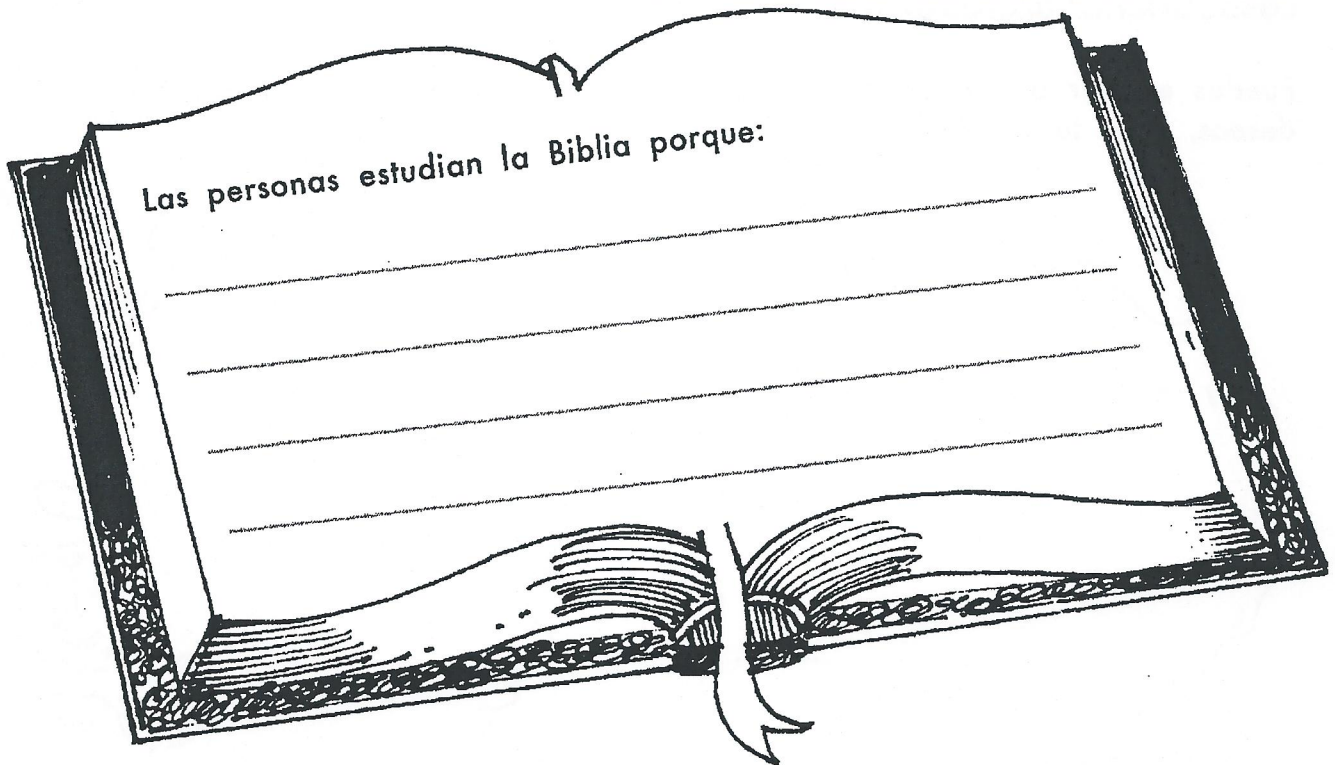 Las personas estudian la Biblia porque: